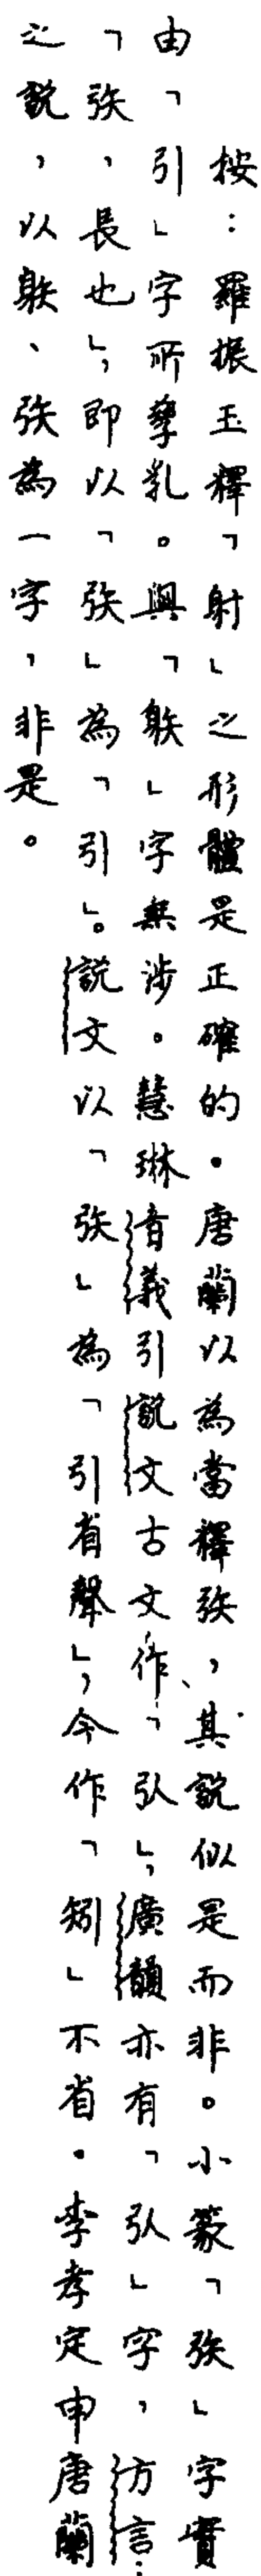 按：羅振玉釋「射」之形體是正確的。唐蘭以為當釋㢧，其說似是而非。小篆「㢧」字實
由「引」字所孳乳。與「躲」字無涉。慧琳音義引說文古文作「弘」，廣韻亦有「弘」字，方言：
「㢧，長也」，即以「㢧」為「引」。說文以「㢧」為「引省聲」，今作「矧」不省。李孝定申唐蘭
之說，以躲、㢧為一字，非是。